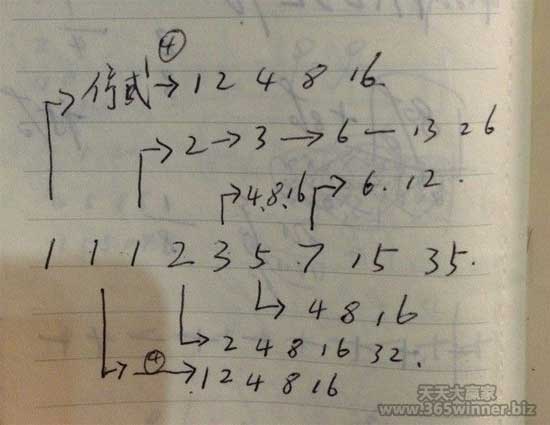 ④
停或1 → 1 2 4 8 16
2 → 3 → 6 — 13 26
4.8.16 6.12.
1 1 1 2 3 5 7 15 35.
4 8 16
2 4 8 16 32.
④ → 1 2 4 8 16
天天大赢家
www.365winner.biz